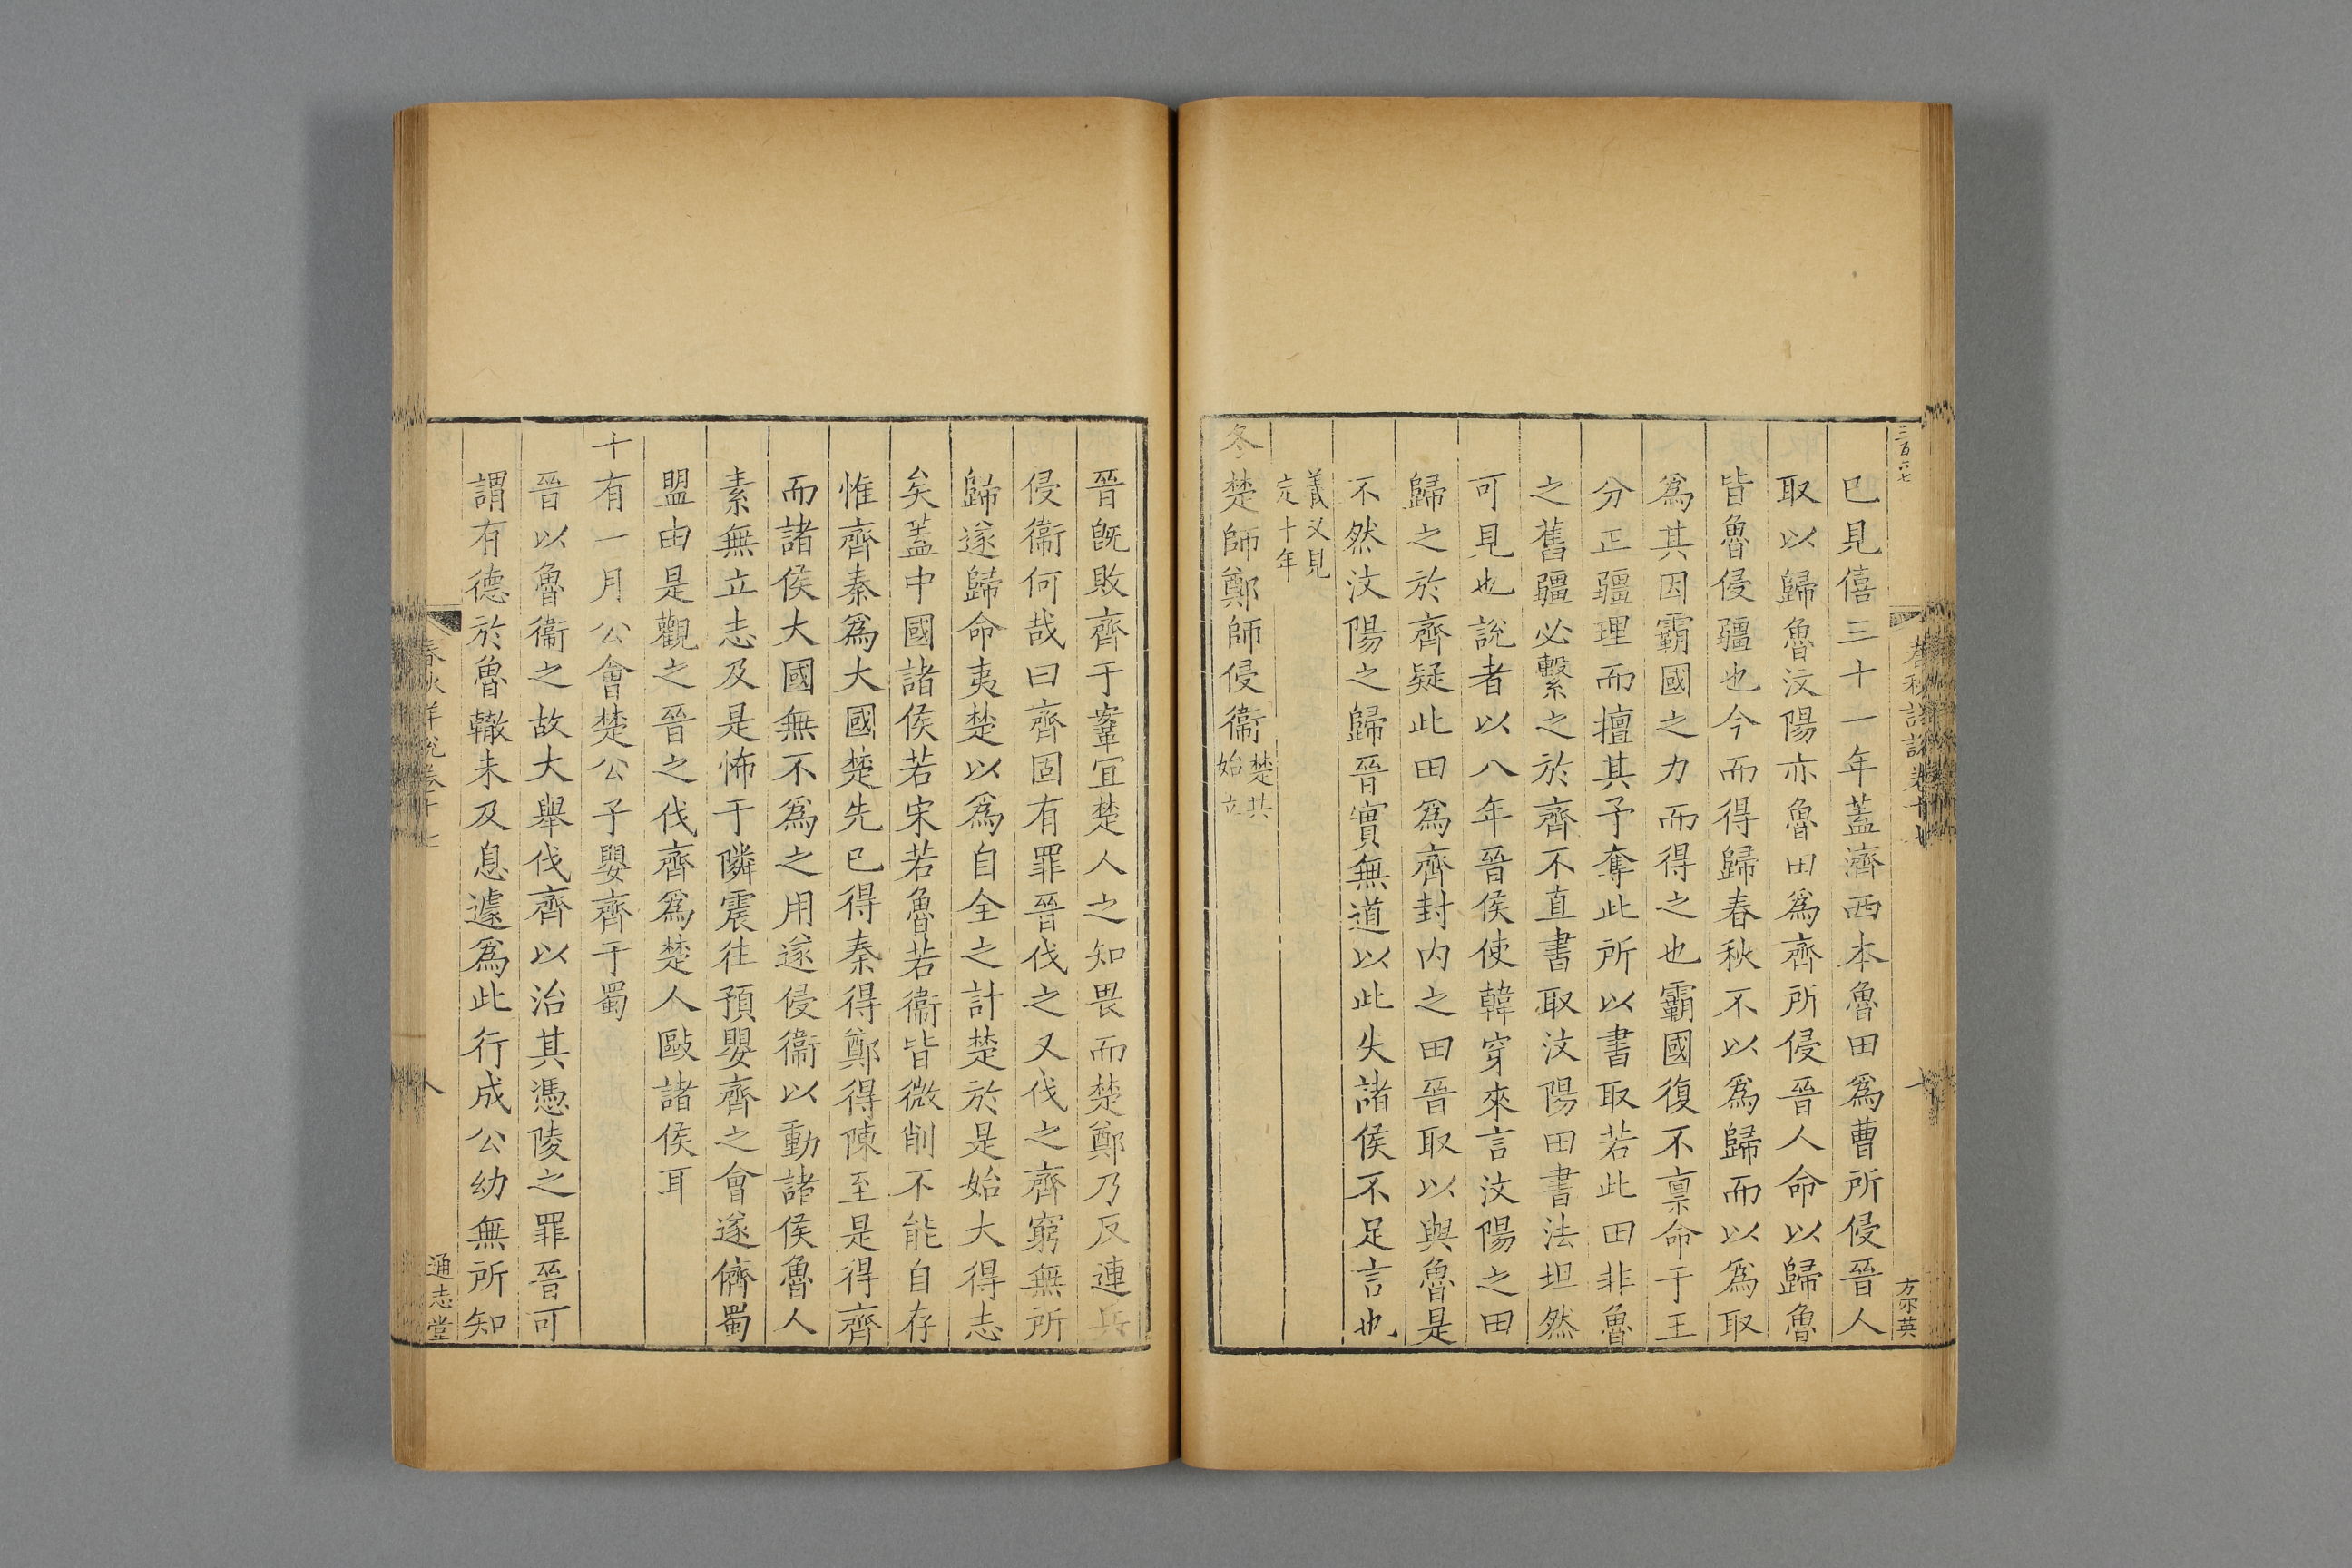 三百六七
春秋詳說卷十七
方尒英
已見僖三十一年蓋濟西本魯田爲曹所侵晉人
取以歸魯汶陽亦魯田爲齊所侵晉人命以歸魯
皆魯侵疆也今而得歸春秋不以爲歸而以爲取
爲其因霸國之力而得之也霸國復不禀命于王
分正疆理而擅其予奪此所以書取若此田非魯
之舊疆必繫之於齊不直書取汶陽田書法坦然
可見也說者以八年晉侯使韓穿來言汶陽之田
歸之於齊疑此田爲齊封内之田晉取以與魯是
不然汶陽之歸晉實無道以此失諸侯不足言也
義又見
定十年
冬楚師鄭師侵衞楚共
始立
晉旣敗齊于鞌宜楚人之知畏而楚鄭乃反連兵
侵衞何哉曰齊固有罪晉伐之又伐之齊窮無所
歸遂歸命夷楚以爲自全之計楚於是始大得志
矣蓋中國諸侯若宋若魯若衞皆微削不能自存
惟齊秦爲大國楚先已得秦得鄭得陳至是得齊
而諸侯大國無不爲之用遂侵衞以動諸侯魯人
素無立志及是怖于隣震往預嬰齊之會遂儕蜀
盟由是觀之晉之伐齊爲楚人敺諸侯耳
十有一月公會楚公子嬰齊于蜀
晉以魯衞之故大舉伐齊以治其憑陵之罪晉可
謂有德於魯轍未及息遽爲此行成公幼無所知
春秋詳說卷十七
八
通志堂